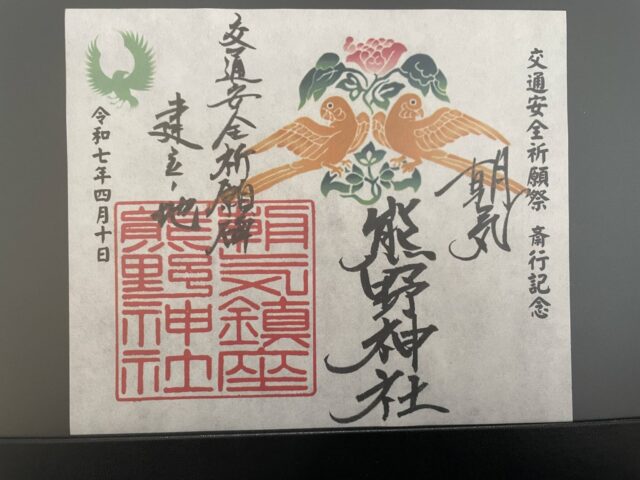 交通安全祈願祭 斎行記念
朝気
熊野神社
交通安全祈願碑
建立ノ地
朝気鎮座
熊野神社
令和七年四月十日